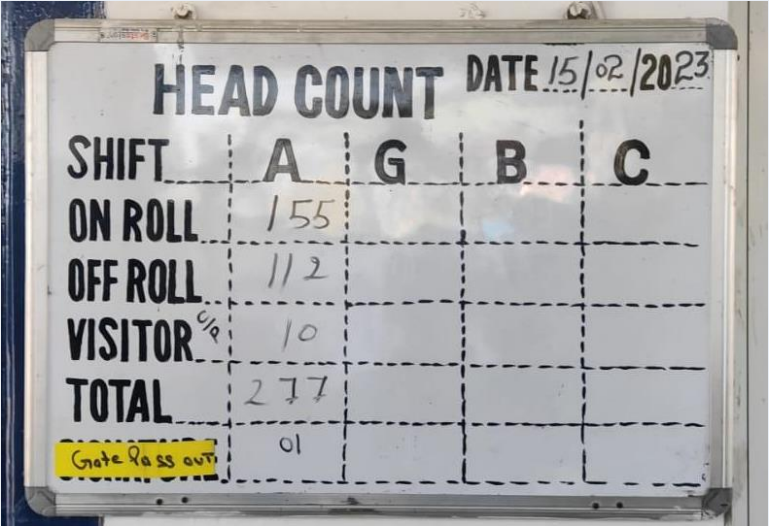 HEAD COUNT DATE 15/02/2023
SHIFT A G B C
ON ROLL 155
OFF ROLL 112
VISITOR C/P 10
TOTAL 277
Gate Pass out 01